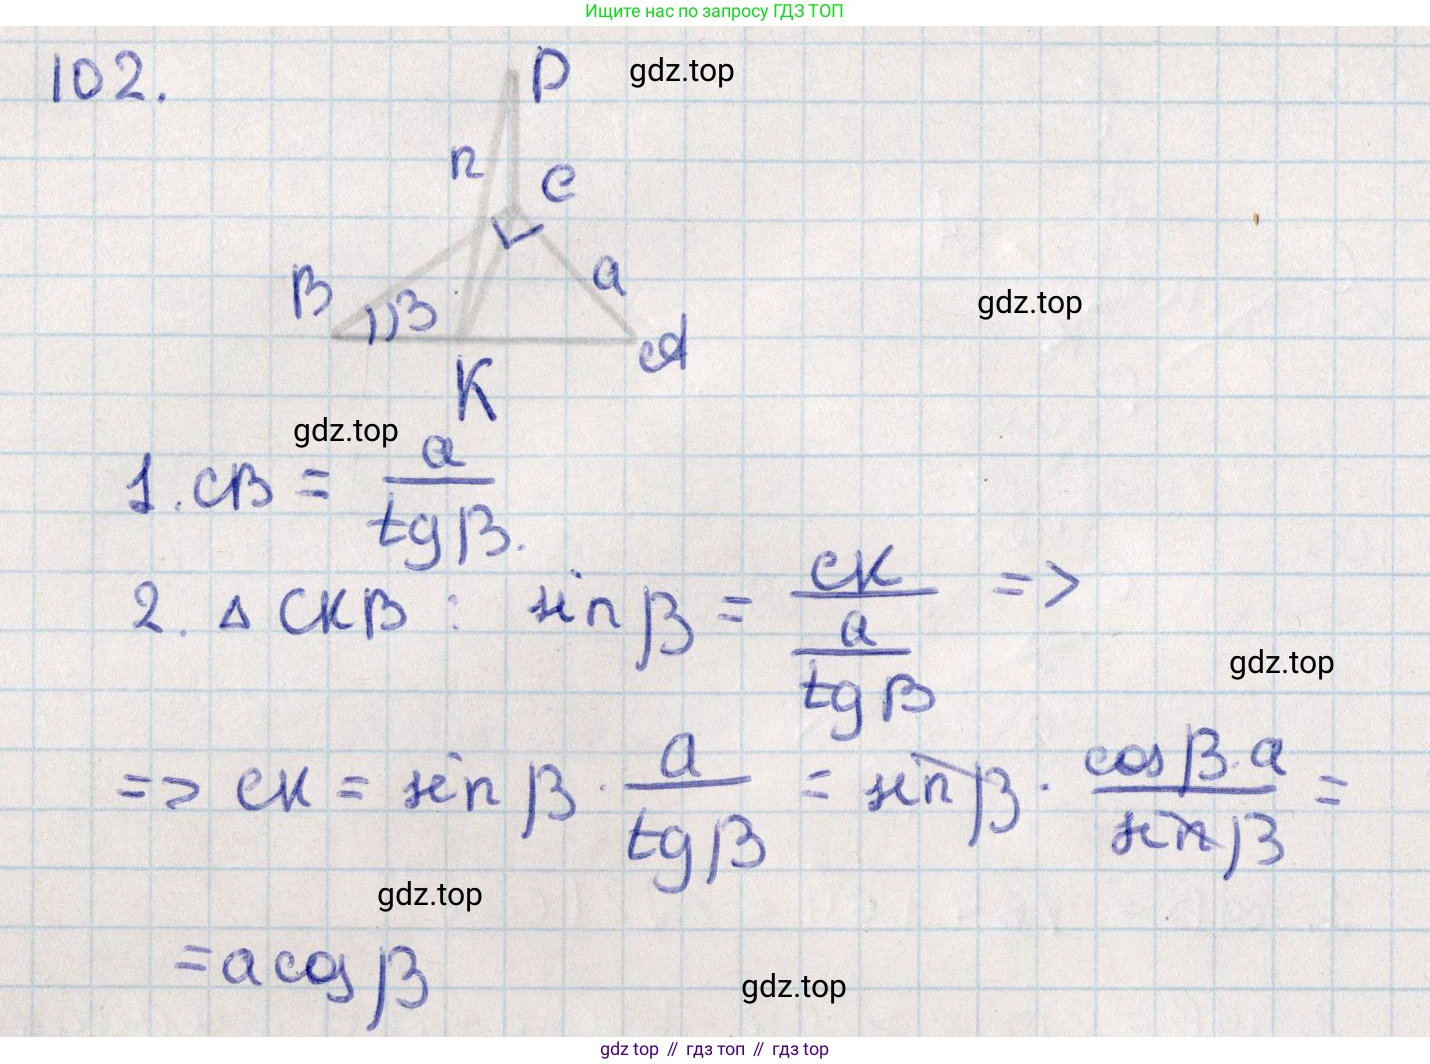 Ищите нас по запросу ГДЗ ТОП
102.
D
gdz.top
n
C
B
β
a
A
gdz.top
K
gdz.top
1. CB = a / tgβ.
2. Δ CKB : sinβ = CK / (a / tgβ) =>
gdz.top
=> CK = sinβ · a / tgβ = sinβ · cosβ·a / sinβ =
gdz.top
= a cosβ
gdz.top
gdz top // гдз топ // гдз top